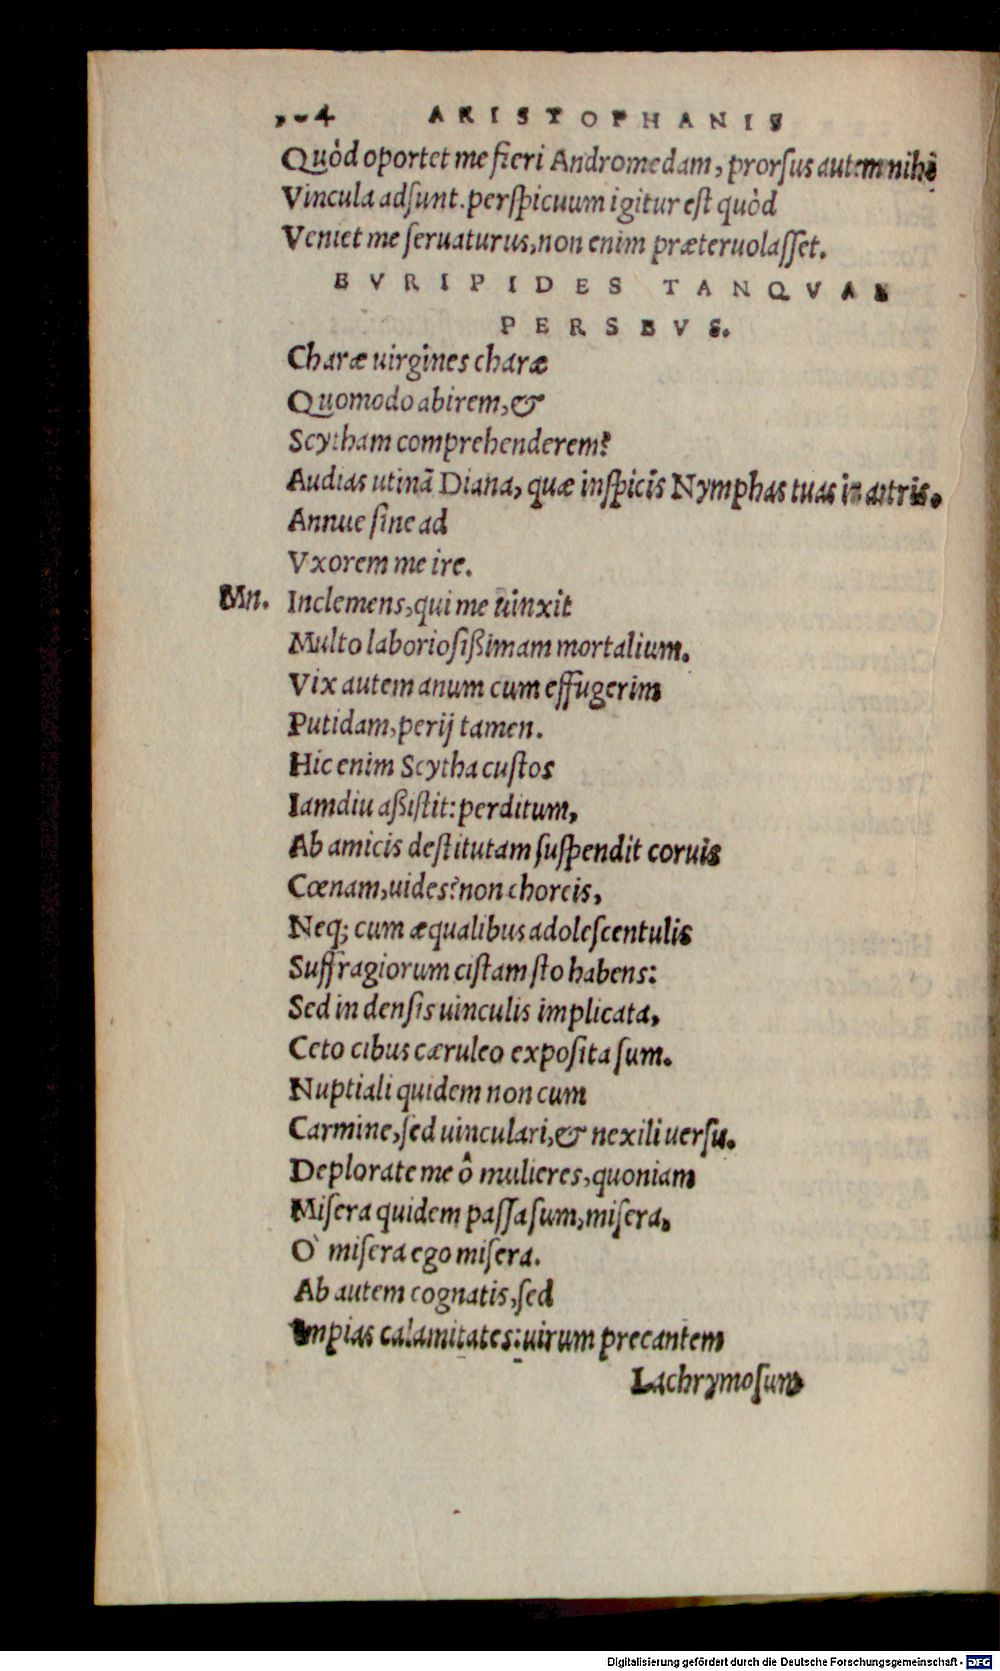 4 ARISTOPHANIS
Quòd oportet me fieri Andromedam, prorſus autem nihi
Vincula adſunt. perſpicuum igitur eſt quòd
Veniet me ſeruaturus, non enim præteruolaſſet.
EVRIPIDES TANQVAM
PERSEVS.
Charæ uirgines charæ
Quomodo abirem, &
Scytham comprehenderem?
Audias utinā Diana, quæ inſpicis Nymphas tuas in
Annue ſine ad
Vxorem me ire.
Mn. Inclemens, qui me uinxit
Multo laborioſißimam mortalium.
Vix autem anum cum effugerim
Putidam, perij tamen.
Hic enim Scytha cuſtos
Iamdiu aßiſtit: perditum,
Ab amicis deſtitutam ſuſpendit coruis
Cœnam, uides? non choreis,
Neq; cum æqualibus adoleſcentulis
Suffragiorum ciſtam ſto habens:
Sed in denſis uinculis implicata,
Ceto cibus cæruleo expoſita ſum.
Nuptiali quidem non cum
Carmine, ſed uinculari, & nexili uerſu.
Deplorate me ô mulieres, quoniam
Miſera quidem paſſa ſum, miſera,
O` miſera ego miſera.
Ab autem cognatis, ſed
Impias calamitates: uirum precantem
Lachrymoſum
Digitalisierung gefördert durch die Deutsche Forschungsgemeinschaft - DFG